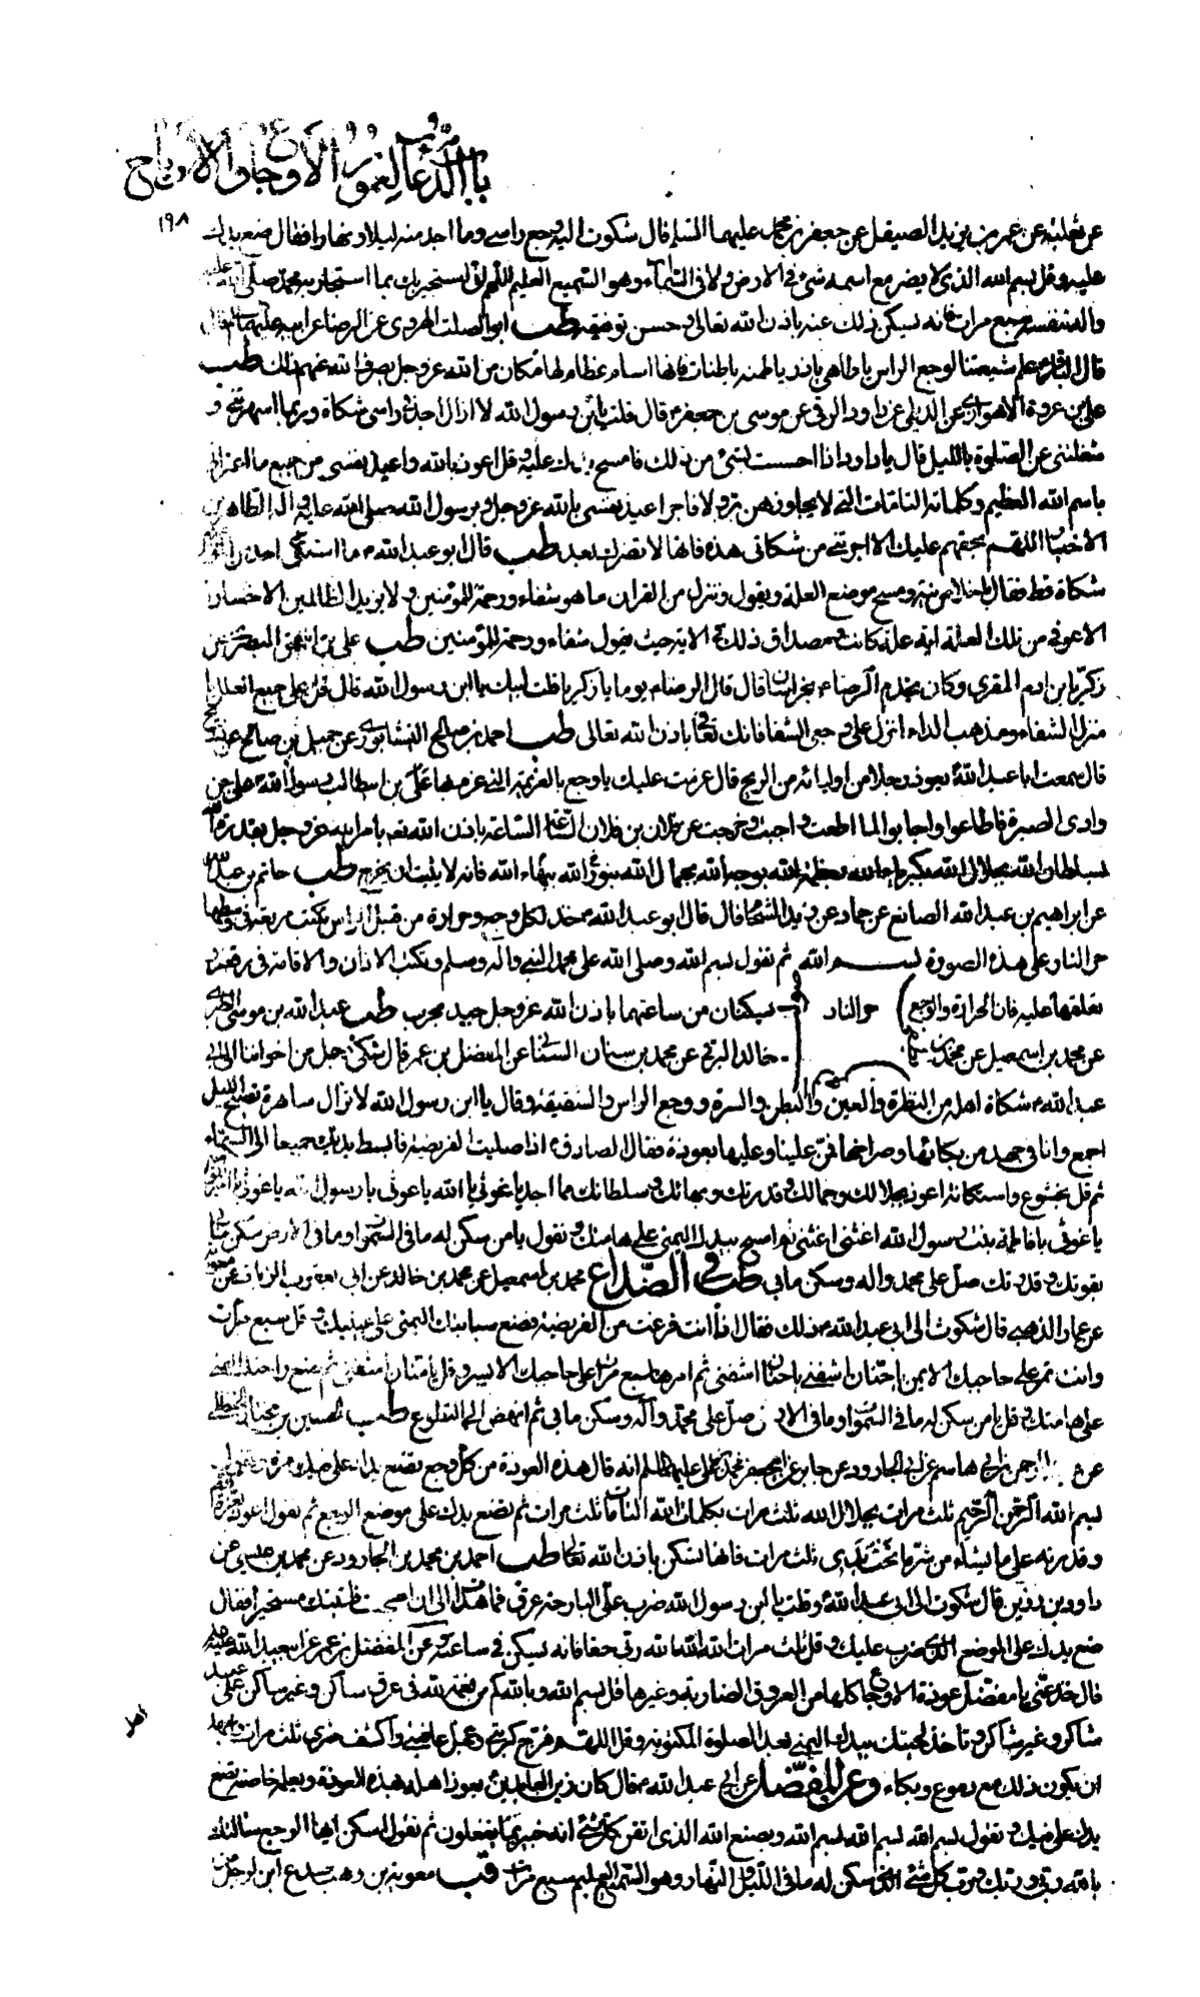 باب الدعاء لعموم الاوجاع والارياح
١٩٨
عن ثعلبة عن عمر بن يزيد الصيقل عن جعفر بن محمد عليهما السلم قال شكوت اليه وجع راسي وما اجد منه ليلا ونهارا فقال ضع يدك
عليه وقل بسم الله الذي لا يضر مع اسمه شئ في الارض ولا في السماء وهو السميع العليم اللهم اني استجير بك بما استجار به محمد صلى الله عليه
واله لنفسه سبع مرات فانه يسكن ذلك عنه باذن الله تعالى وحسن توفيقه طب ابو الصلت الهروي عن الرضا عن ابيه عليهما السلم قال
قال الباقر علم شيعتنا لوجع الراس يا طاهي يا ذر يا طمنة يا طنات فانها اسام عظام لها مكان من الله عز وجل يصرف الله عنهم ذلك طب
علي بن عروة الاهوازي عن الديلمي عن داود الرقي عن موسى بن جعفر قال قلت يابن رسول الله لا ازال اجد في راسي شكاة وربما اسهرتني و
شغلتني عن الصلوة بالليل قال يا داود اذا احسست بشئ من ذلك فامسح يدك عليه وقل اعوذ بالله واعيذ نفسي من جميع ما اعتراني
باسم الله العظيم وكلماته التامات التي لا يجاوزهن بر ولا فاجر اعيذ نفسي بالله عز وجل وبرسول الله صلى الله عليه واله الطاهرين
الاخيار اللهم بحقهم عليك الا اجرتني من شكاتي هذه فانها لا تضرك بعد طب قال ابو عبد الله ما اشتكى احد من المؤمنين
شكاة قط فقال باخلاص نية ومسح موضع العلة ويقول وننزل من القران ما هو شفاء ورحمة للمؤمنين ولا يزيد الظالمين الا خسارا
الا عوفي من تلك العلة اية علة كانت ومصداق ذلك في الاية حيث يقول شفاء ورحمة للمؤمنين طب علي بن اسحق البصري عن
زكريا بن ادم المقري وكان يخدم الرضا بخراسان قال قال الرضا يوما يا زكريا قلت لبيك يا ابن رسول الله قال قل على جميع العلل يا
منزل الشفاء ومذهب الداء انزل على وجعي الشفا فانك تعافى باذن الله تعالى طب احمد بن صالح النيشابوري عن جميل بن صالح عن ذريح
قال سمعت ابا عبد الله يعوذ رجلا من اوليائه من الريح قال عزمت عليك يا وجع بالعزيمة التي عزم بها علي بن ابيطالب رسول الله على جن
وادي الصبرة فاطاعوا واجابوا لما اطعت واجبت وخرجت عن فلان بن فلان الساعة الساعة باذن الله تعه بامر الله عز وجل بقدرة الله
بسلطان الله بجلال الله بكبرياء الله بعظمة الله بوجه الله بجمال الله بنور الله ببهاء الله فانه لا يلبث ان يخرج طب حاتم بن عبد الله
عن ابراهيم بن عبد الله الصائغ عن حماد عن زيد الشحام قال قال ابو عبد الله خذ لكل وجع وحرارة من قبل الراس تكتب مربعة في وسطها
حر النار على هذه الصورة بسم الله ثم تقول بسم الله وصلى الله على محمد النبي واله وسلم وتكتب الاذان والاقامة في رقعة
تعلقها عليه فان الحرارة والوجع حر النار يسكنان من ساعتهما باذن الله عز وجل جيد مجرب طب عبد الله بن موسى الطبري
عن محمد بن اسمعيل عن محمد بن خالد البرقي عن محمد بن سنان السناني عن المفضل بن عمر قال شكى رجل من اخواننا الى ابي
عبد الله شكاة اهله من النظرة والعين والبطن والسرة ووجع الراس والشقيقة وقال يا ابن رسول الله لا تزال ساهرة تصيح الليل
اجمع وانا في جهد من بكائها وصراخها فمن علينا وعليها بعوذة فقال الصادق اذا صليت الفريضة فابسط يديك جميعا الى السماء
ثم قل بخشوع واستكانة اعوذ بجلالك وجمالك وقدرتك وبهائك وسلطانك مما اجد يا غوثي يا الله يا غوثي يا رسول الله يا غوثي يا امير المؤمنين
يا غوثي يا فاطمة بنت رسول الله اغثني اغثني ثم امسح بيدك اليمنى على هامتك وتقول يا من سكن له ما في السموات وما في الارض سكن ما بي
بقوتك وقدرتك صل على محمد واله وسكن ما بي طب في الصداع محمد بن اسمعيل عن محمد بن خالد عن ابي يعقوب الزيات عن معوية
عن عمار الذهبي قال شكوت الى ابي عبد الله ذلك فقال اذا انت فرغت من الفريضة فضع سبابتك اليمنى على عينيك وقل سبع مرات
وانت تمرها على حاجبك الايمن يا حنان اشفني يا حنان اشفني ثم امرها سبع مرات على حاجبك الايسر وقل يا منان اشفني ثم ضع راحتك اليمنى
على هامتك وقل يا من سكن له ما في السموات وما في الارض صل على محمد وآله وسكن ما بي ثم انهض الى التطوع طب الحسين بن مختار الحنظلي
عن هاشم عن ابي الجارود عن جابر عن ابي جعفر محمد بن علي عليهما السلم انه قال هذه العوذة من كل وجع تضع يدك على فمك مرة وتقول
بسم الله الرحمن الرحيم ثلث مرات بجلال الله ثلث مرات بكلمات الله التامات ثلث مرات ثم تضع يدك على موضع الوجع ثم تقول اعوذ بعزة الله
وقدرته على ما يشاء من شر ما تحت يدي ثلث مرات فانها تسكن باذن الله تعالى طب احمد بن محمد بن الجارود عن محمد بن عيسى عن
داود بن رزين قال شكوت الى ابي عبد الله وقلت يابن رسول الله ضرب علي البارحة عرق فما هدأت الى ان اصبحت فاتيتك مستجيرا فقال
ضع يدك على الموضع الذي ضرب عليك وقل ثلث مرات الله الله الله ربي حقا فانه يسكن في ساعته وعن المفضل بن عمر عن ابيعبد الله عليه السلم
قال خذ عني يا مفضل عوذة الاوجاع كلها من العروق الضاربة وغيرها قل بسم الله وبالله كم من نعمة لله في عرق ساكن وغير ساكن على عبد
شاكر وغير شاكر وتاخذ لحيتك بيدك اليمنى بعد الصلوة المكتوبة وقل اللهم فرج كربتي وعجل عافيتي واكشف ضري ثلث مرات واجهد
ان يكون ذلك مع دموع وبكاء وعن المفضل عن ابي عبد الله قال كان زين العابدين يعوذ اهله بهذه العوذة ويعلمها خاصته تضع
يدك على فيك وتقول بسم الله بسم الله بسم الله وبصنع الله الذي اتقن كل شئ انه خبير بما يفعلون ثم تقول اسكن ايها الوجع سالتك
بالله ربي وربك ورب كل شئ الذي سكن له ما في الليل والنهار وهو السميع العليم سبع مرات قب معوية بن وهب صدع ابن لرجل من
اهل